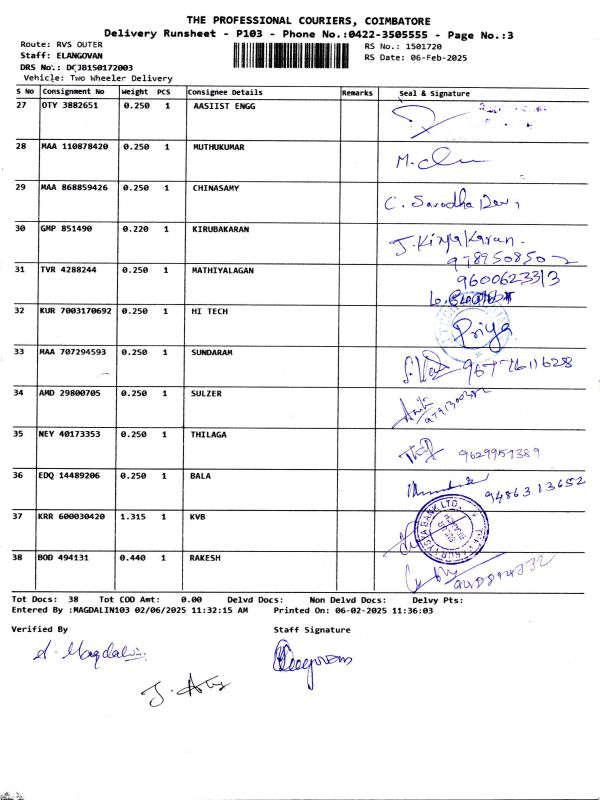 THE PROFESSIONAL COURIERS, COIMBATORE
Delivery Runsheet - P103 - Phone No.:0422-3505555 - Page No.:3
Route: RVS OUTER RS No.: 1501720
Staff: ELANGOVAN RS Date: 06-Feb-2025
DRS No.: DCJB150172003
Vehicle: Two Wheeler Delivery
S No Consignment No Weight PCS Consignee Details Remarks Seal & Signature
27 OTY 3882651 0.250 1 AASIIST ENGG
28 MAA 110878420 0.250 1 MUTHUKUMAR
29 MAA 868859426 0.250 1 CHINASAMY C. Sarodha Devi
30 GMP 851490 0.220 1 KIRUBAKARAN J. Kirya Karan.
9789508502
31 TVR 4288244 0.250 1 MATHIYALAGAN 9600623313
32 KUR 7003170692 0.250 1 HI TECH Priya
33 MAA 707294593 0.250 1 SUNDARAM 9677611628
34 AMD 29800705 0.250 1 SULZER
35 NEY 40173353 0.250 1 THILAGA 9629957389
36 EDQ 14489206 0.250 1 BALA 9486313652
37 KRR 600030420 1.315 1 KVB
38 BOD 494131 0.440 1 RAKESH
Tot Docs: 38 Tot COD Amt: 0.00 Delvd Docs: Non Delvd Docs: Delvy Pts:
Entered By :MAGDALIN103 02/06/2025 11:32:15 AM Printed On: 06-02-2025 11:36:03
Verified By Staff Signature
A. Magdalin